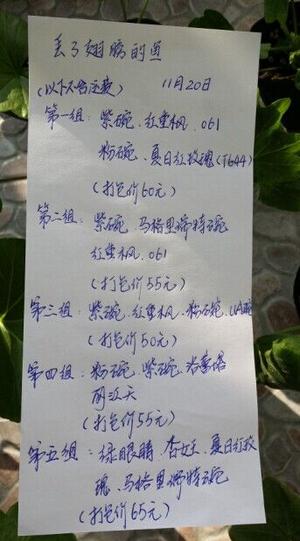 丢了翅膀的鱼
(以下不含运费) 11月20日
第一组: 紫碗、红重枫、061
粉碗、夏日红玫瑰(T644)
(打包价60元)
第二组: 紫碗、马格里特碗
红重枫、061
(打包价55元)
第三组: 紫碗、红重枫、粉碗、
(打包价50元)
第四组: 粉碗、紫碗、
(打包价55元)
第五组: 绿眼睛、杏女王、夏日红玫
瑰、马格里特碗
(打包价65元)